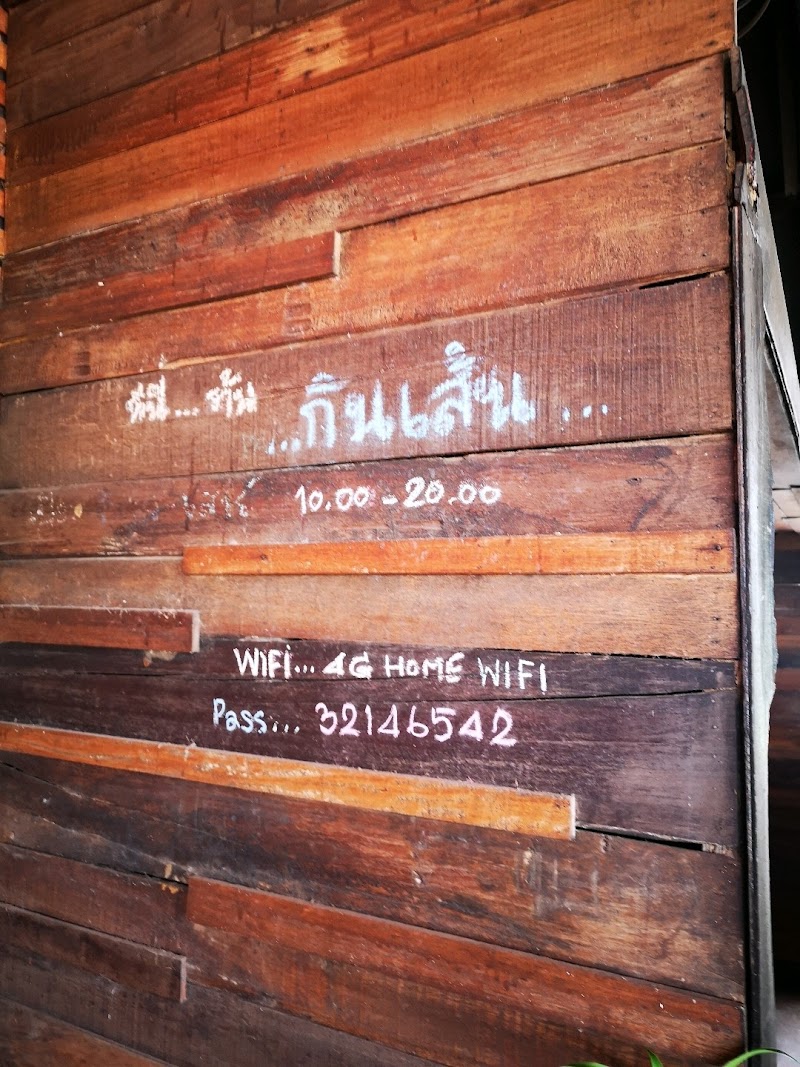 ที่นี่... ร้าน ...กินเส้น...
10.00 - 20.00
WIFI... 4G HOME WIFI
Pass... 32146542